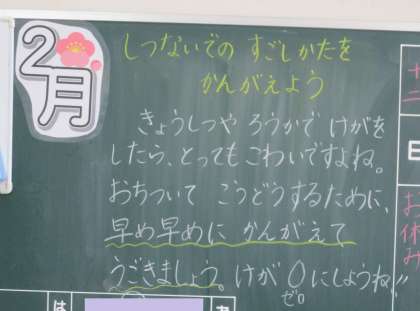 2月
しつないでの すごしかたを
かんがえよう
きょうしつや ろうかで けがを
したら、とっても こわいですよね。
おちついて こうどうするために、
早め早めに かんがえて
うごきましょう。けが0にしようね!!
ゼロ
お休み
は